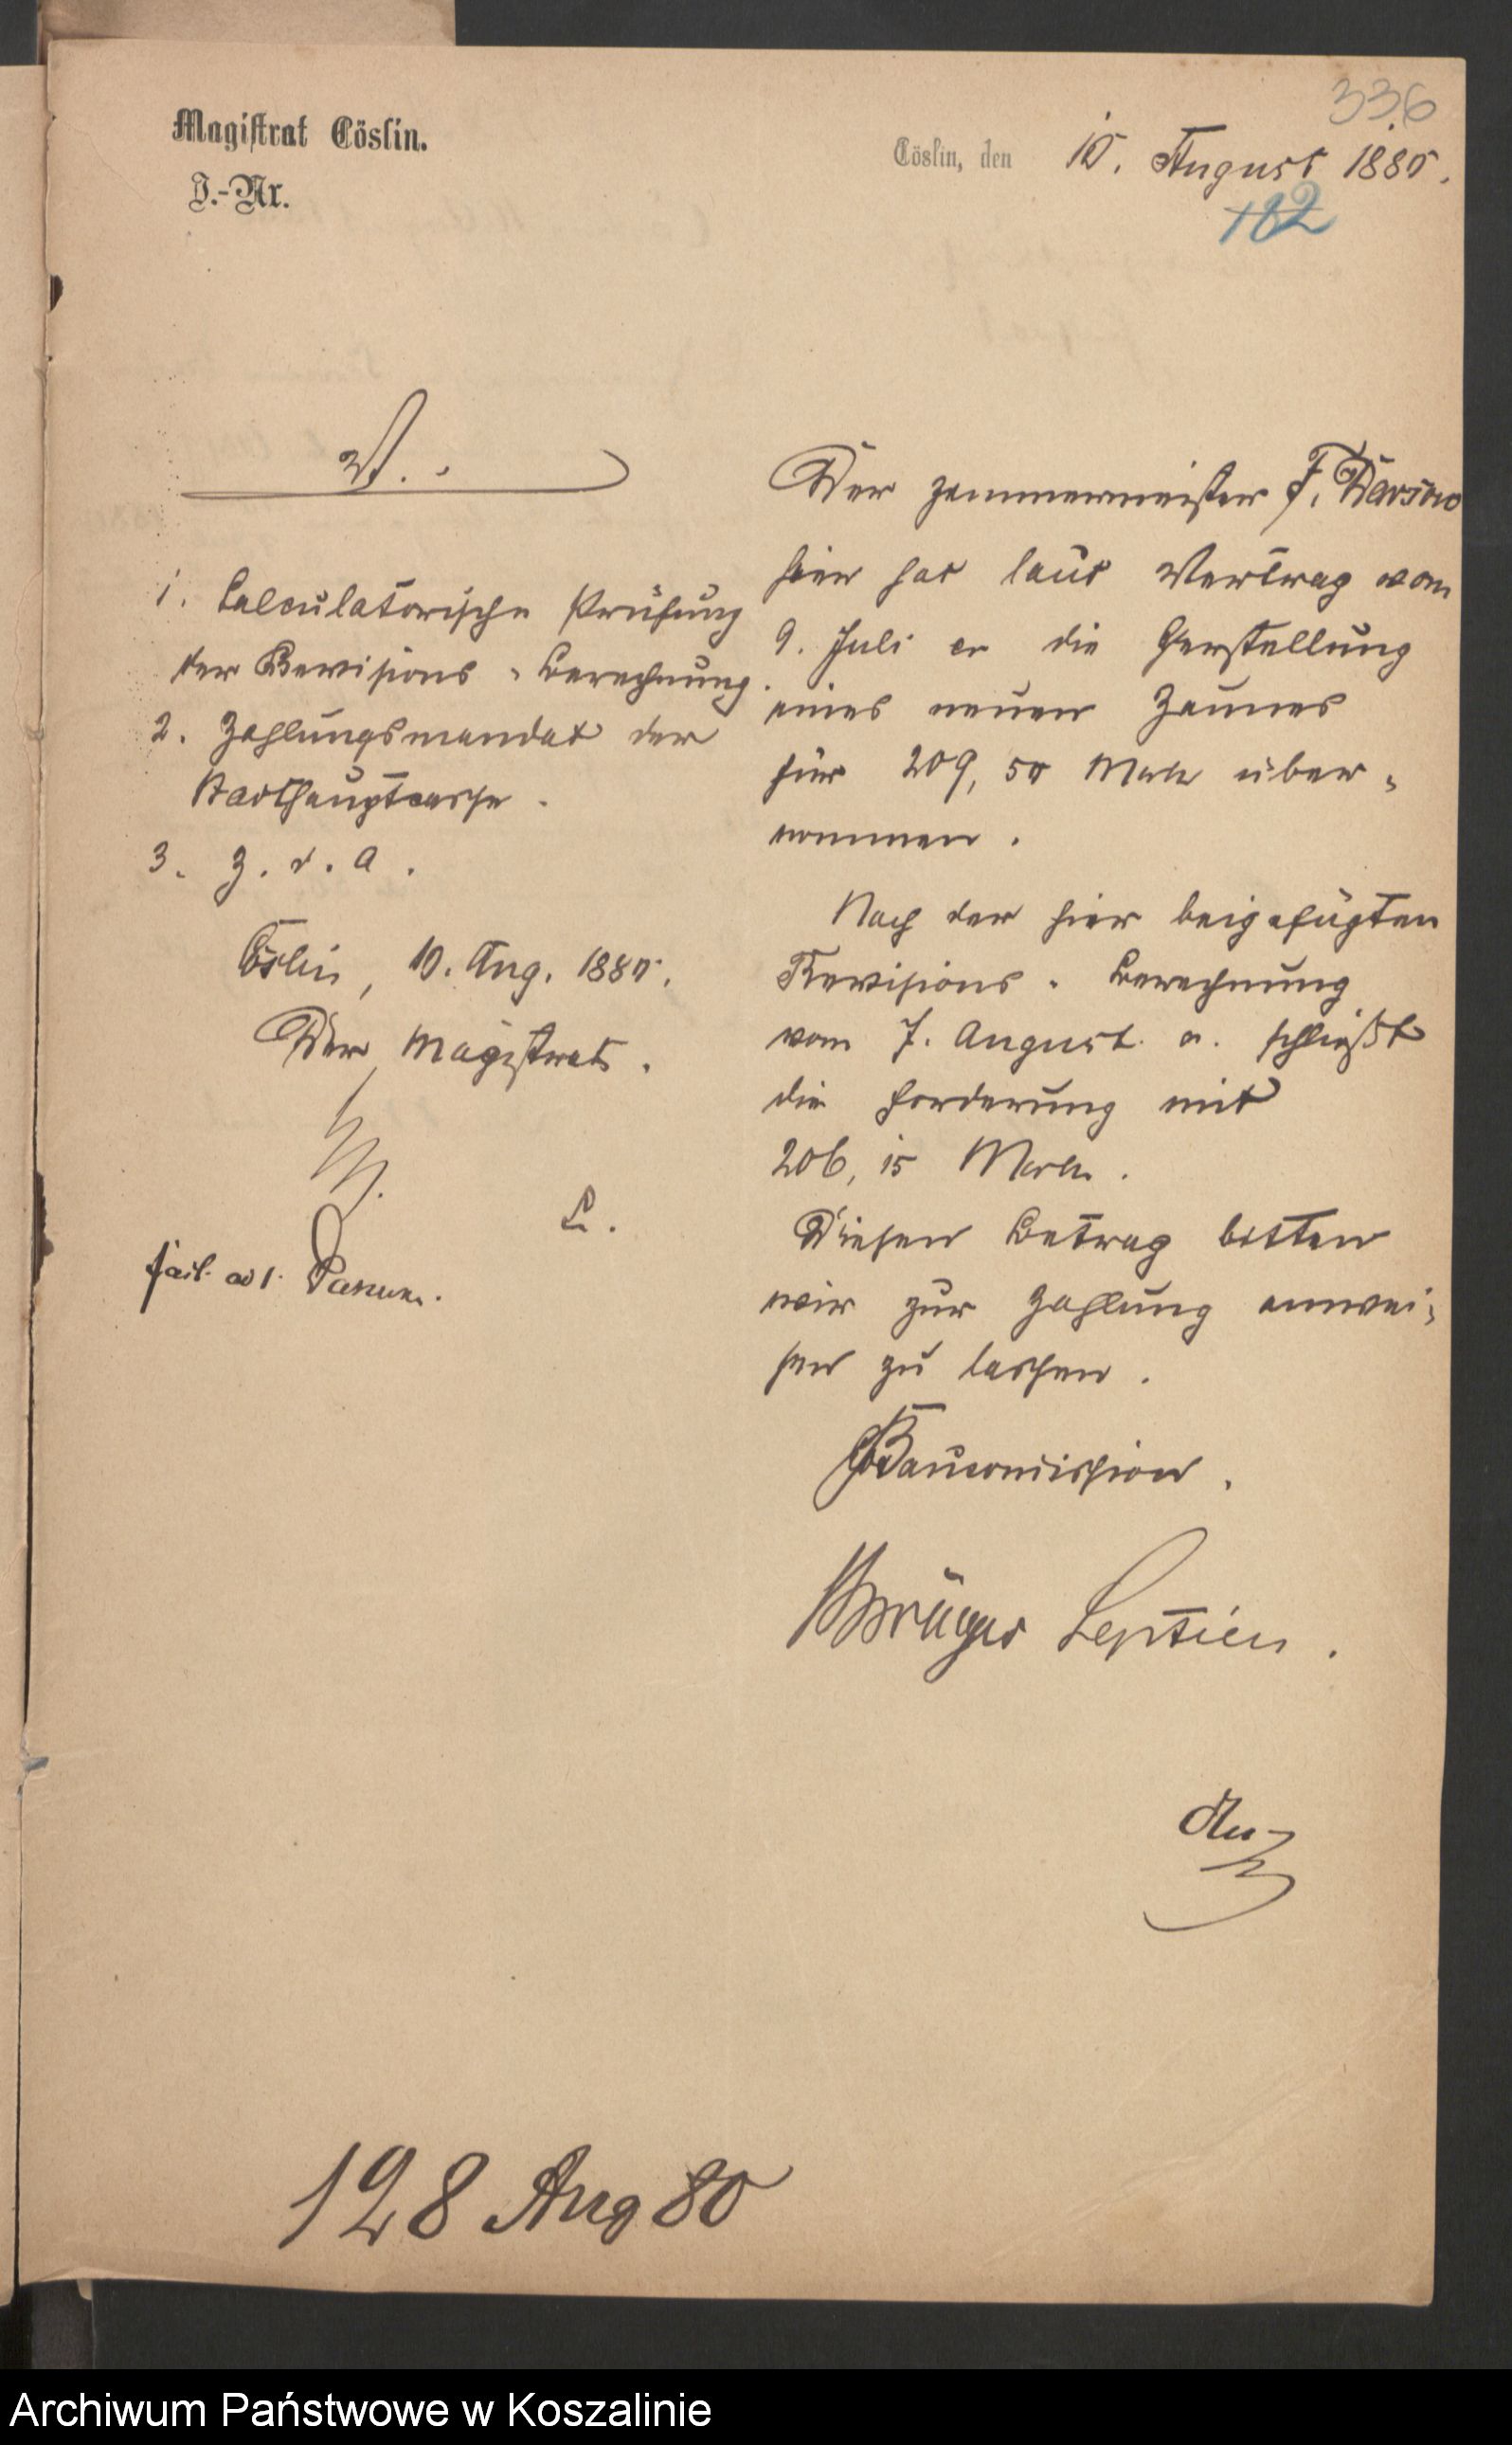 336
Magistrat Cöslin.
J.-Nr.
Cöslin, den 10. August 1880.
182
V.
1. Calculatorische Prüfung
der Revisions-Berechnung.
2. Zahlungsmandat der
Stadthauptcasse.
3. Z. d. A.
Cöslin, 10. Aug. 1880.
Der Magistrat.
L.
ad 1.
Der Zimmermeister F. Darsow
hier hat laut Vertrag vom
9. Juli cr die Herstellung
eines neuen Zaunes
für 209,50 Mark über-
nommen.
Nach der hier beigefügten
Revisions-Berechnung
vom 7. August a. schließt
die Forderung mit
206,15 Mark.
Diesen Betrag bitten
wir zur Zahlung anwei-
sen zu lassen.
Baucomission.
Krüger Leptien.
128 Aug 80
Archiwum Państwowe w Koszalinie